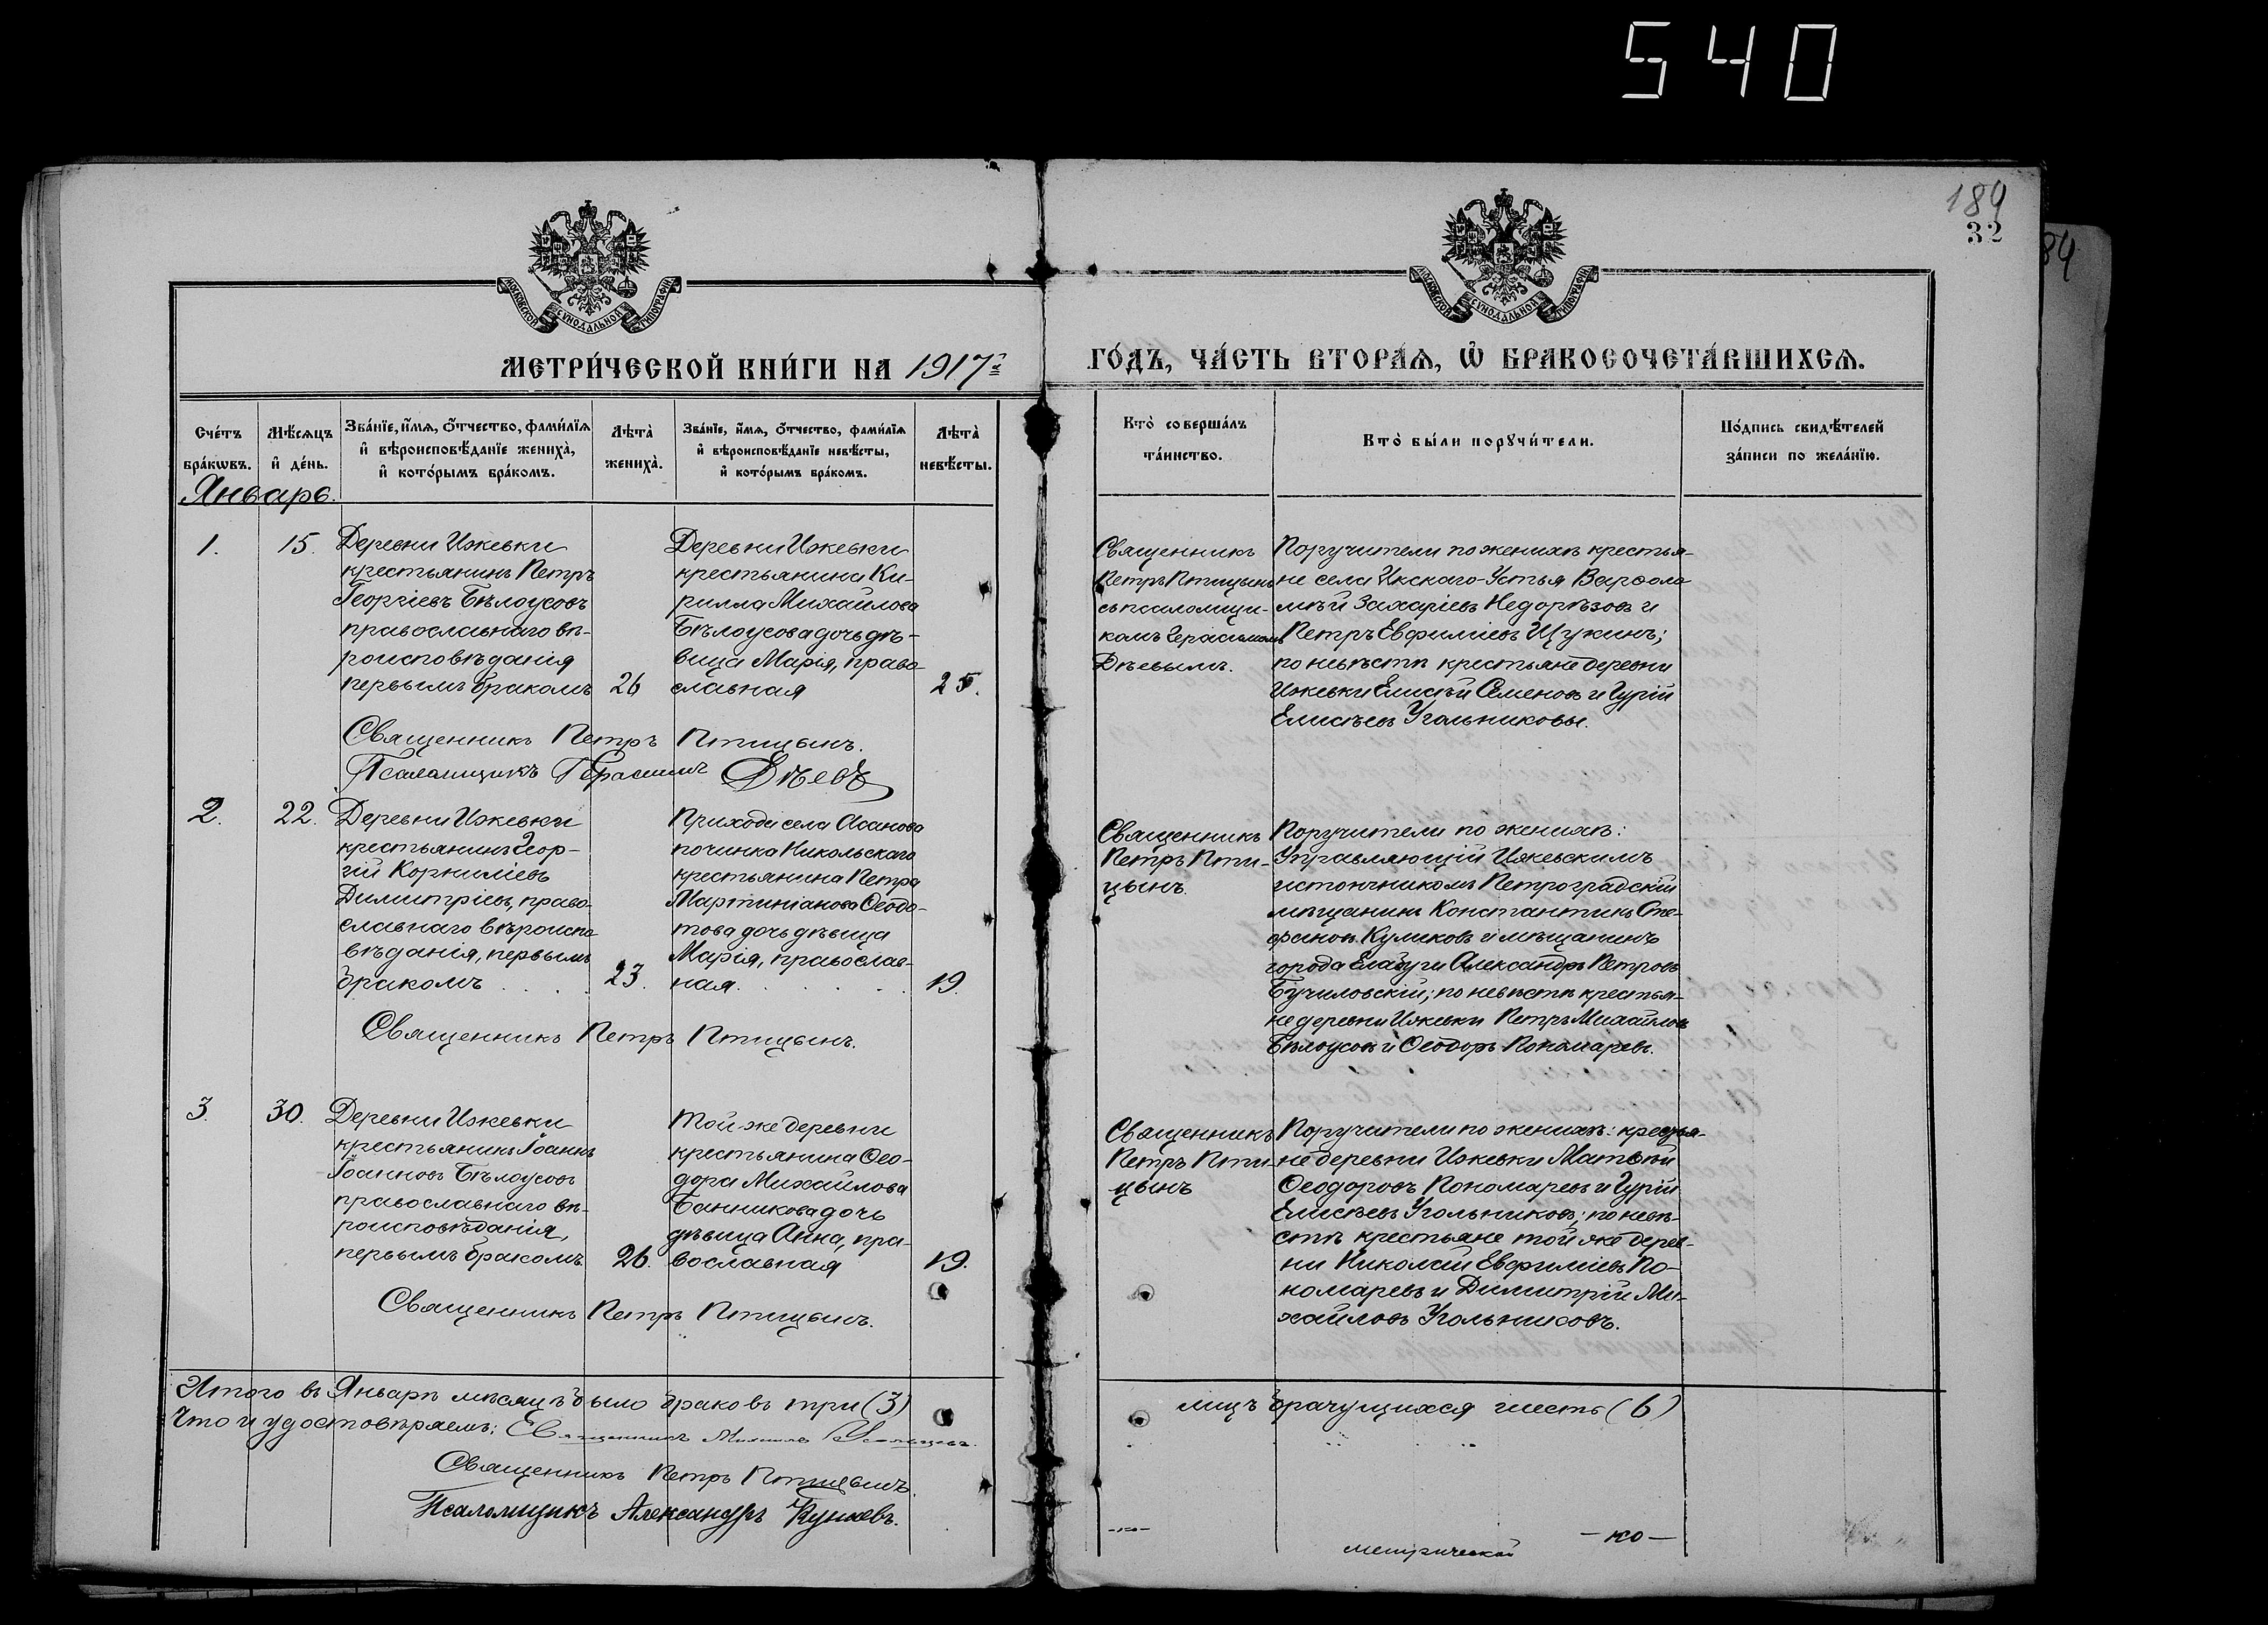 540
189
32
84
МОСКОВСКОЙ СУНОДАЛЬНОЙ ТИПОГРАФІИ
МОСКОВСКОЙ СУНОДАЛЬНОЙ ТИПОГРАФІИ
МЕТРИ́ЧЕСКОЙ КНИ́ГИ НА 1917й
ГО́ДЪ, ЧА́СТЬ ВТОРА́Ѧ, Ѡ҆ БРАКОСОЧЕТА́ВШИХСѦ.
Сче́тъ бра́кѡвъ.
Мѣ́сѧцъ и҆ де́нь.
Зва́нїе, и҆́мѧ, ѻ҆́тчество, фами́лїѧ
и҆ вѣроисповѣ́данїе жениха̀,
и҆ кото́рымъ бра́комъ.
Лѣта̀ жениха̀.
Зва́нїе, и҆́мѧ, ѻ҆́тчество, фами́лїѧ
и҆ вѣроисповѣ́данїе невѣ́сты,
и҆ кото́рымъ бра́комъ.
Лѣта̀ невѣ́сты.
Кто̀ соверша́лъ
та́инство.
Кто̀ бы́ли порꙋчи́тели.
По́дпись свидѣ́телей
за́писи по жела́нїю.
Январь.
1.
15.
Деревни Ижевки
крестьянинъ Петръ
Георгіевъ Бѣлоусовъ
православнаго вѣ-
роисповѣданія
первымъ бракомъ
26
Деревни Ижевки
крестьянина Ки-
рилла Михайлова
Бѣлоусова дочь дѣ-
вица Марія, право-
славная
25.
Священникъ
Петръ Птицынъ
съ псаломщи-
комъ Герасимомъ
Дѣевымъ.
Поручители по женихѣ крестья-
не села Икскаго-Устья Варѳоло-
мѣй Захаріевъ Недорѣзовъ и
Петръ Евфиміевъ Щукинъ;
по невѣстѣ крестьяне деревни
Ижевки Елисѣй Семеновъ и Гурій
Елисѣевъ Угольниковы.
Священникъ Петръ Птицынъ.
Псаломщикъ Герасимъ Дѣевъ
2.
22.
Деревни Ижевки
крестьянинъ Геор-
гій Корниліевъ
Димитріевъ, право-
славнаго вѣроиспо-
вѣданія, первымъ
бракомъ . . . .
23.
Прихода села Асанова
починка Никольскаго
крестьянина Петра
Мартиніанова Ѳедо-
това дочь дѣвица
Марія, православ-
ная. . . . . .
19.
Священникъ
Петръ Пти-
цынъ.
Поручители по женихѣ:
Управляющій Ижевскимъ
источникомъ Петроградскій
мѣщанинъ Константинъ Сте-
фановъ Куликовъ и мѣщанинъ
города Елабуги Александръ Петровъ
Бучиловскій; по невѣстѣ крестья-
не деревни Ижевки Петръ Михайловъ
Бѣлоусовъ и Ѳеодоръ Пономаревъ.
Священникъ Петръ Птицынъ.
3.
30.
Деревни Ижевки
крестьянинъ Іоаннъ
Іоанновъ Бѣлоусовъ
православнаго вѣ-
роисповѣданія,
первымъ бракомъ.
26.
Той-же деревни
крестьянина Ѳео-
дора Михайлова
Банникова дочь
дѣвица Анна, пра-
вославная
19.
Священникъ
Петръ Пти-
цынъ
Поручители по женихѣ: крестья-
не деревни Ижевки Матвѣй
Ѳеодоровъ Пономаревъ и Гурій
Елисѣевъ Угольниковъ; по невѣ-
стѣ крестьяне той же дерев-
ни Николай Евфиміевъ По-
номаревъ и Димитрій Ми-
хайловъ Угольниковъ.
Священникъ Петръ Птицынъ.
Итого въ Январѣ мѣсяцѣ было браковъ три (3)
лицъ брачущихся шесть (6)
Что и удостовѣряемъ: Священникъ
Священникъ Петръ Птицынъ.
Псаломщикъ Александръ
метрической
-ко-